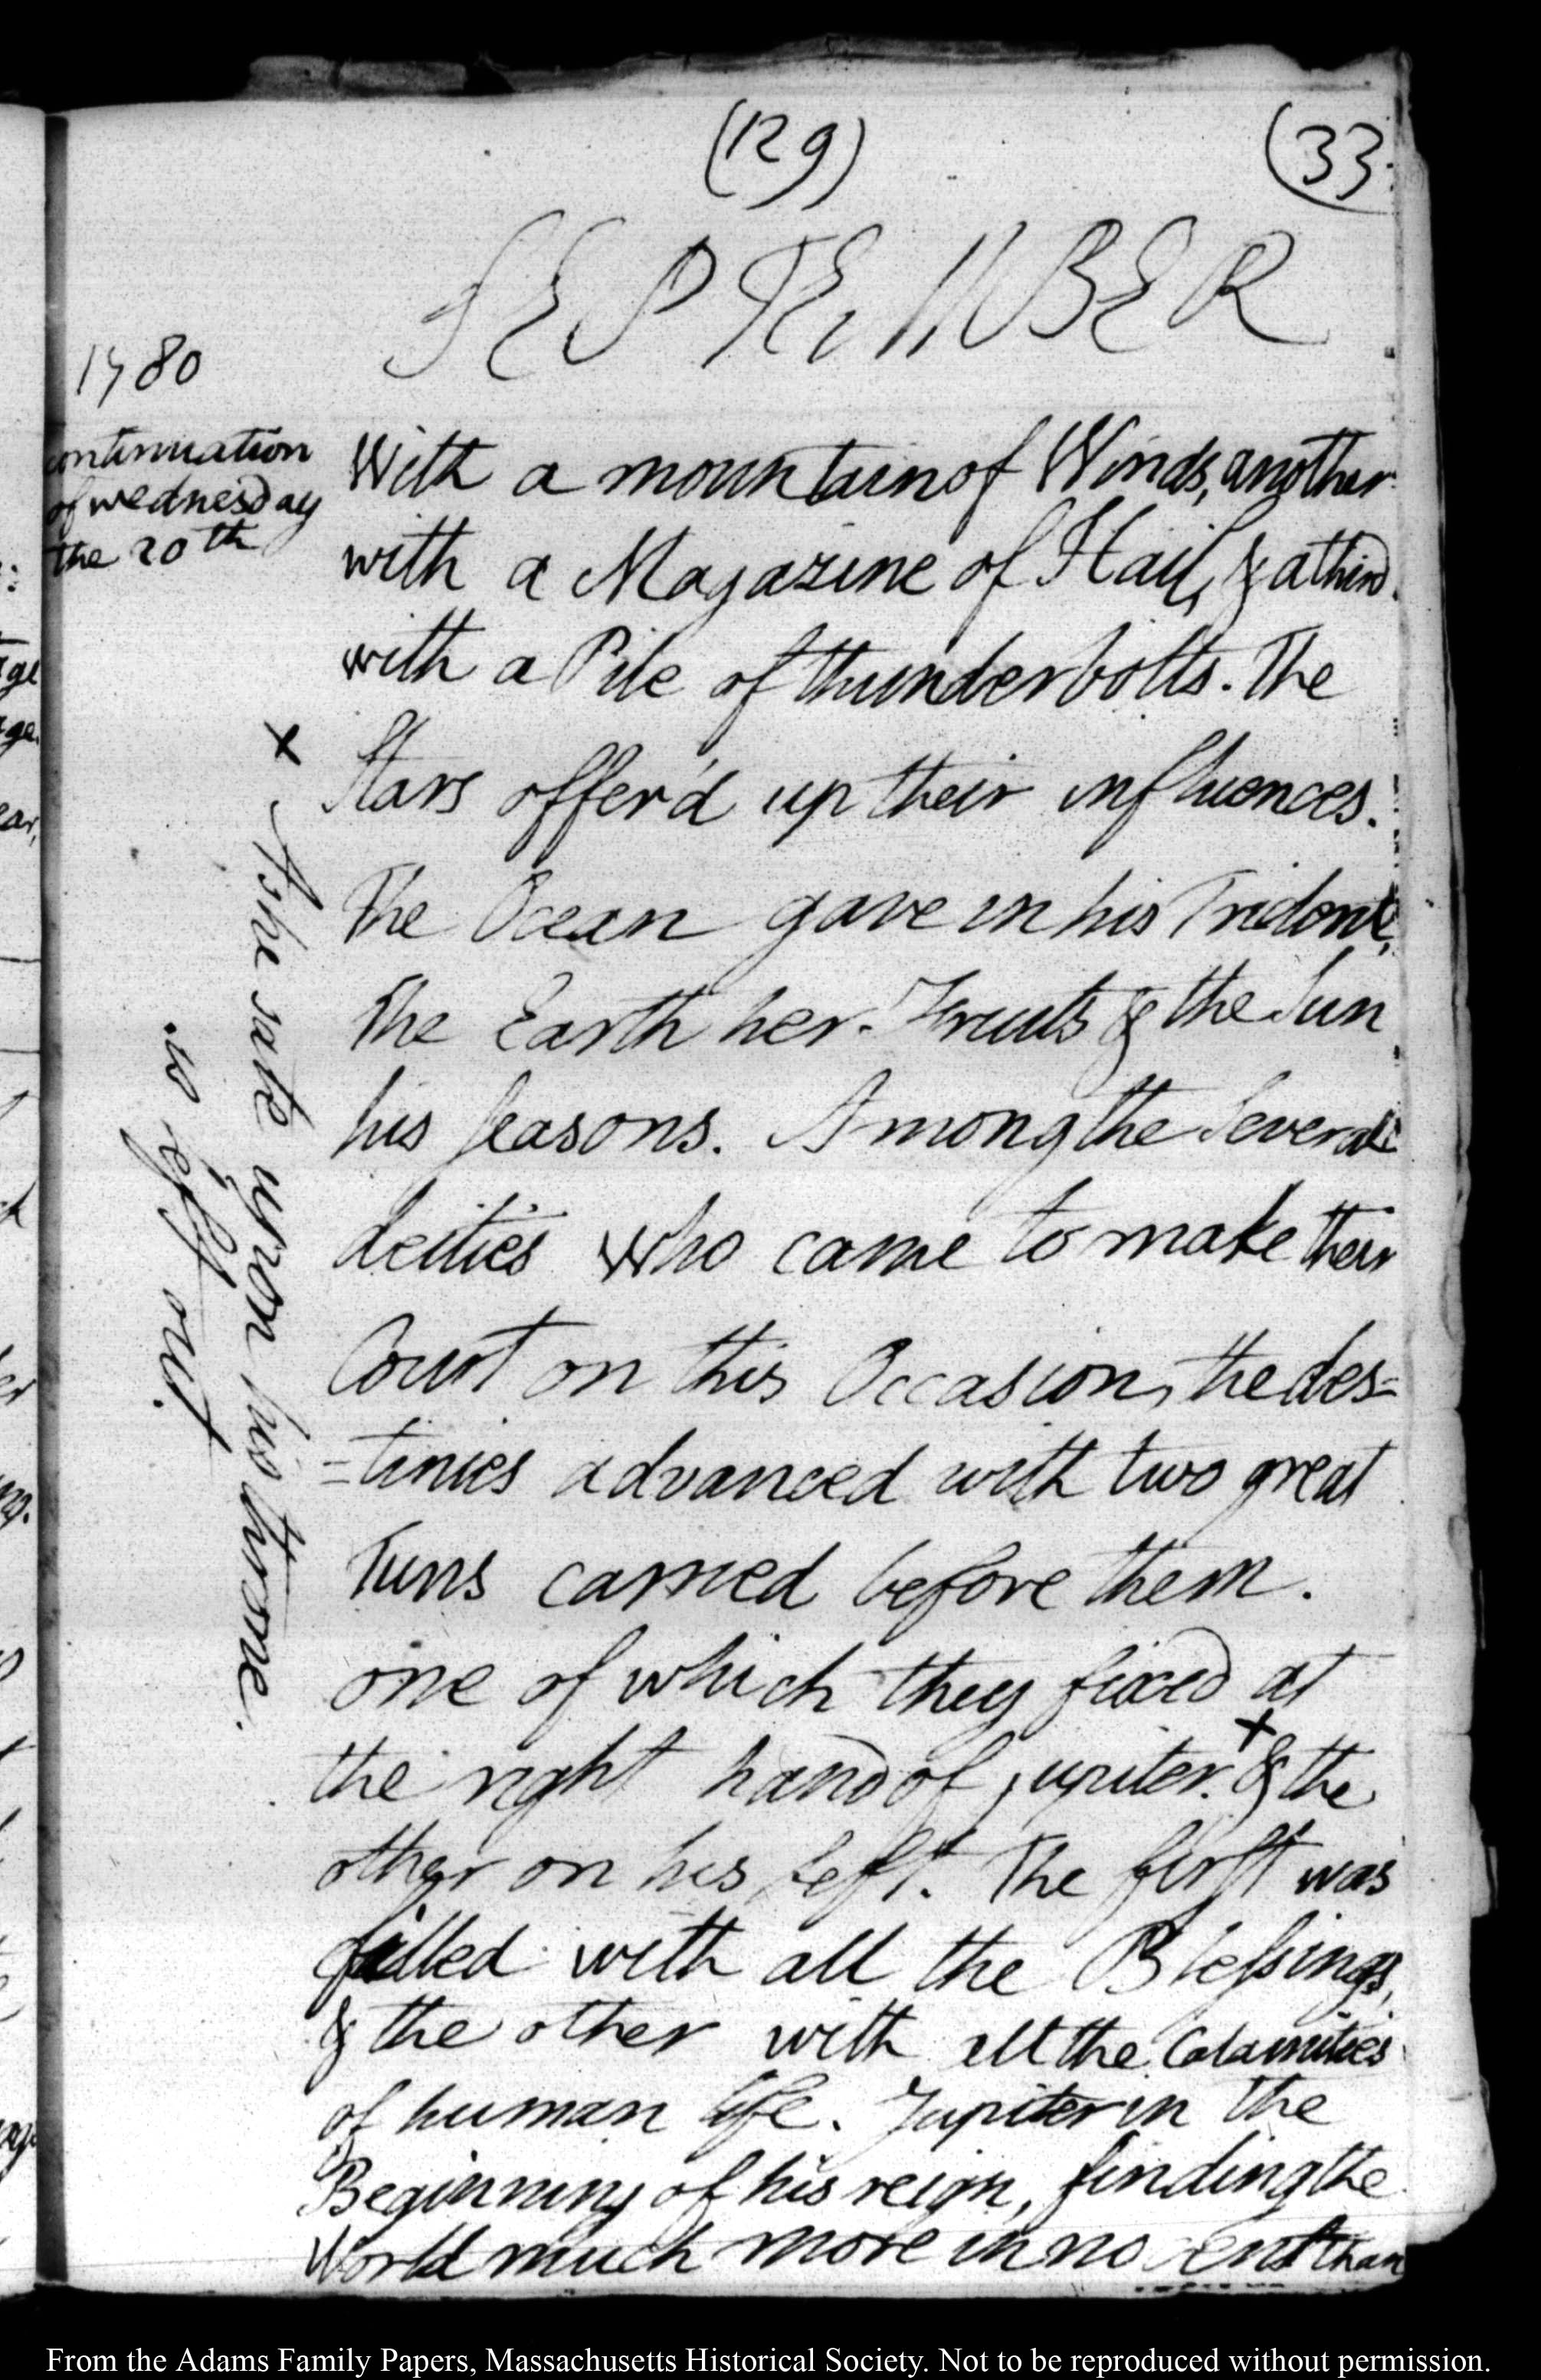 (129)
(33
SEPTEMBER
1780
continuation
of wednesday
the 20th
With a mountain of Winds, another
with a Magazine of Hail, & a third
with a Pile of thunderbolts. The
Stars offer'd up their influences.
The Ocean gave in his Trident,
The Earth her Fruits & the Sun
his seasons. Among the several
deities who came to make their
Court on this Occasion, the des=
=tinies advanced with two great
Tuns carried before them.
one of which they fixed at
the right hand of jupiter. x & the
other on his left. The first was
filled with all the Blessings,
& the other with all the Calamities
of human life. Jupiter in the
Beginning of his reign, finding the
World much more innocent than
x As he sate upon his throne.
is left out.
From the Adams Family Papers, Massachusetts Historical Society. Not to be reproduced without permission.